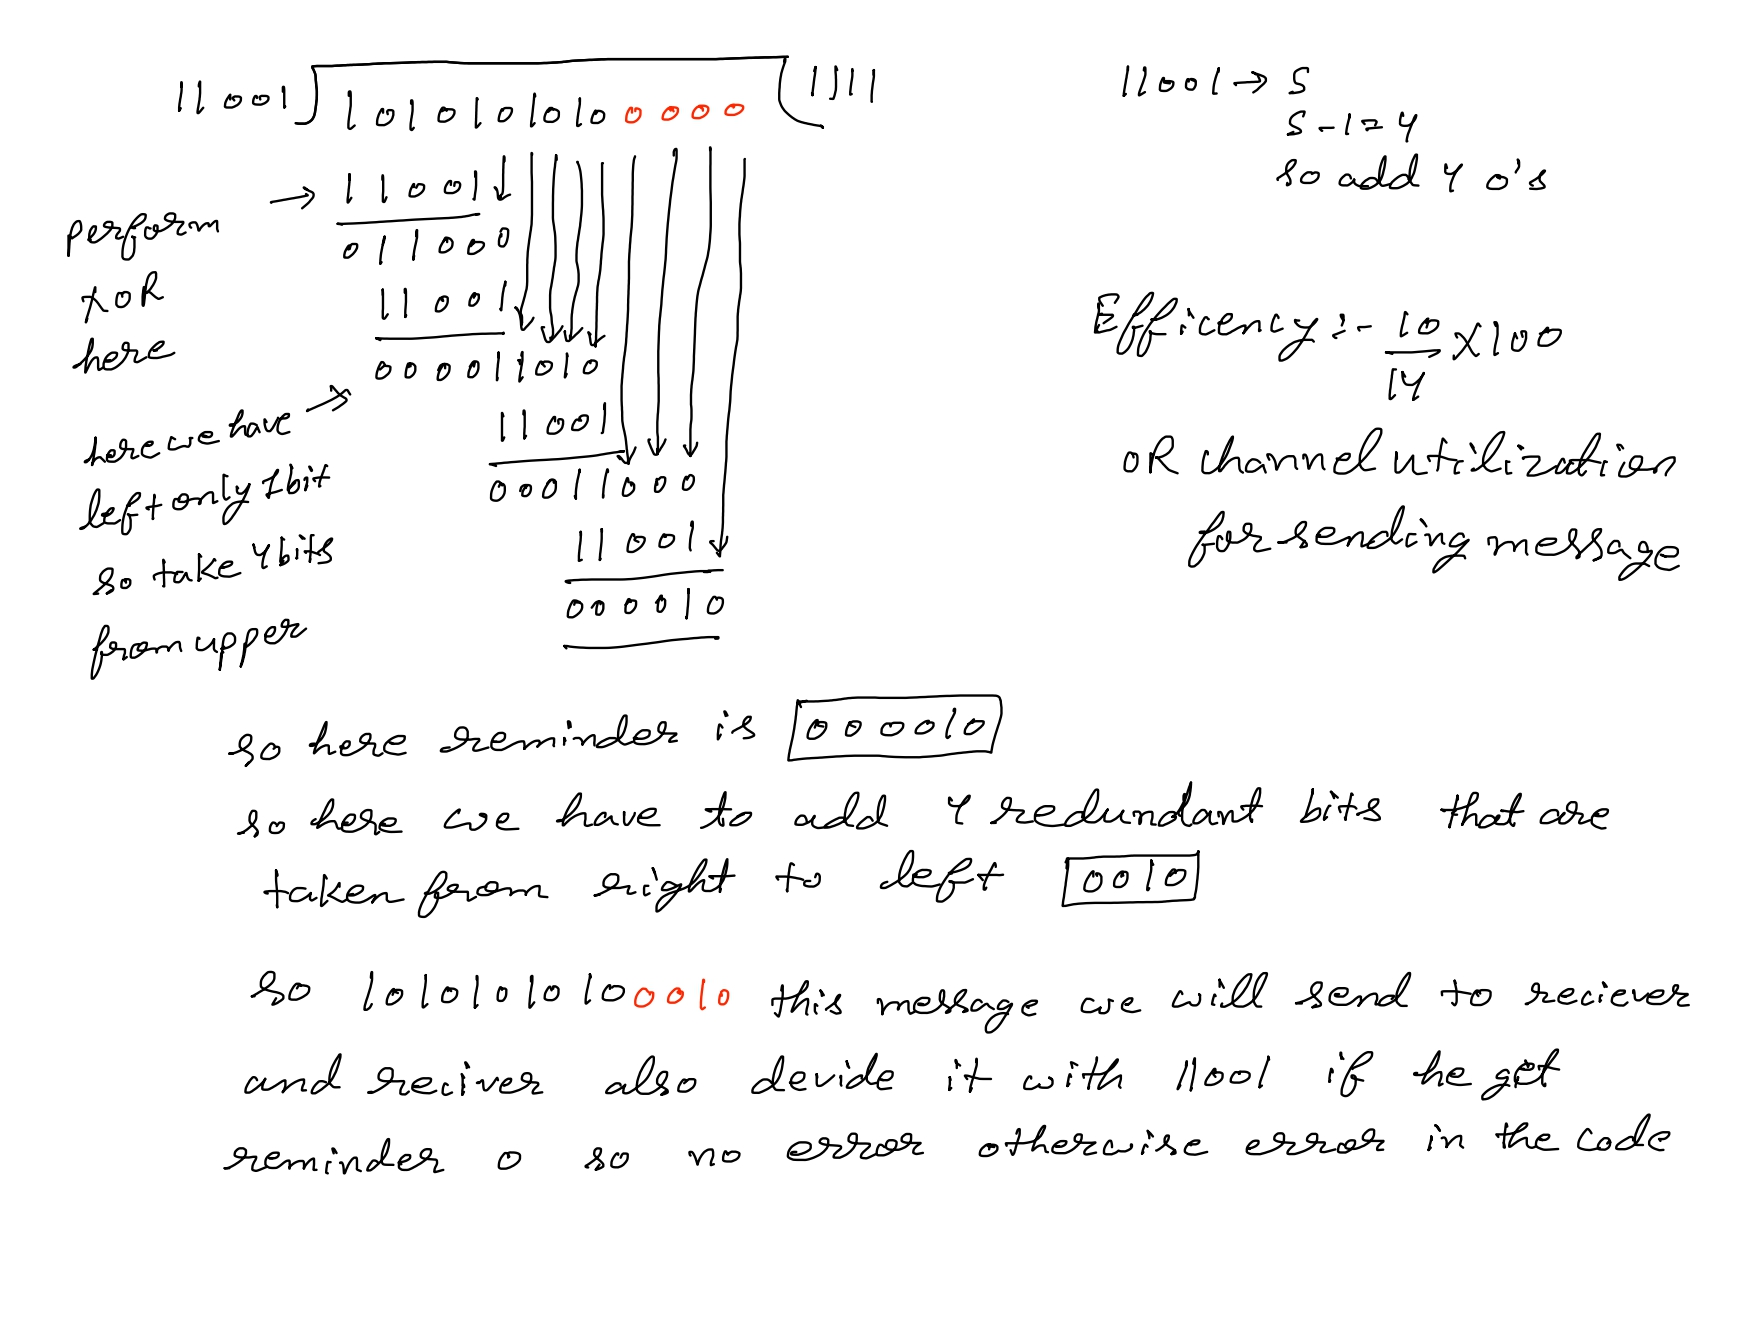 11001 ) 10101010100000 ( 1111
11001
011000
11001
000011010
11001
00011000
11001
000010
perform
XOR
here
here we have
left only 1bit
so take 4bits
from upper
11001 → 5
5-1=4
so add 4 0's
Efficency :- 10/14 X100
OR channel utilization
for sending message
so here reminder is 000010
so here we have to add 4 redundant bits that are
taken from right to left 0010
so 10101010100010 this message we will send to reciever
and reciver also devide it with 11001 if he get
reminder 0 so no error otherwise error in the code